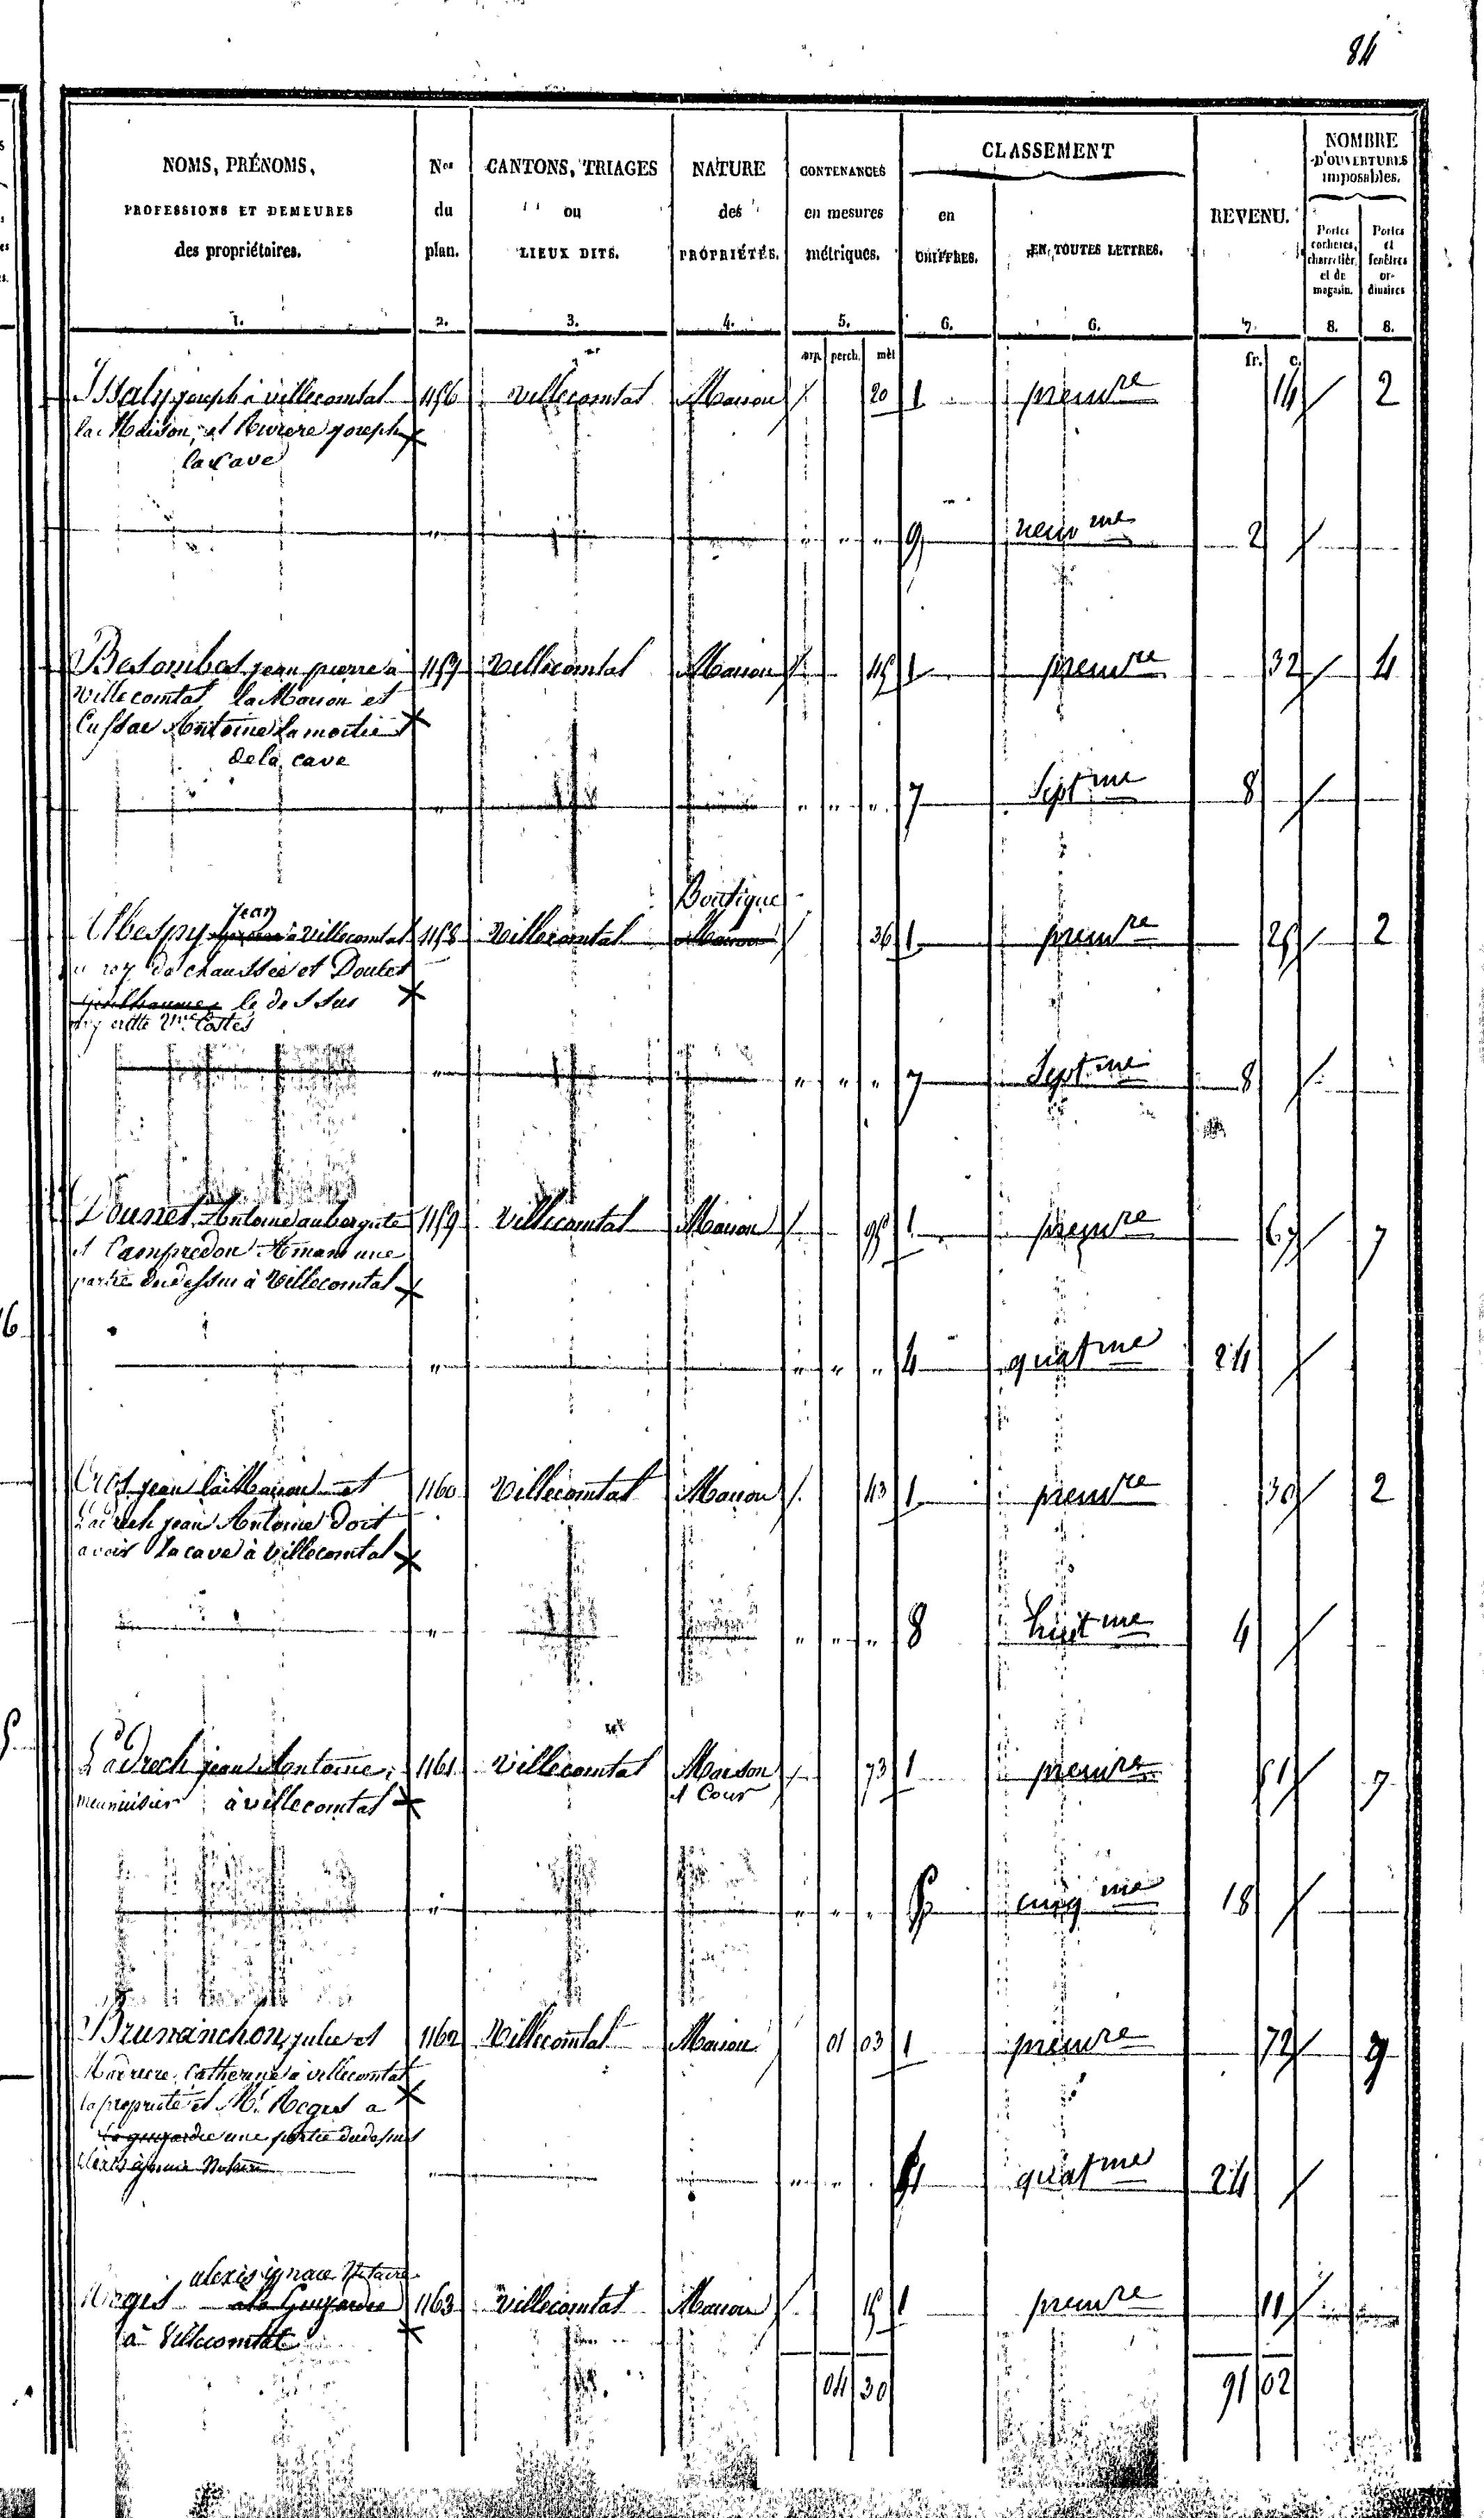 84
NOMS, PRÉNOMS, PROFESSIONS ET DEMEURES des propriétaires. 1.
Nos du plan. 2.
CANTONS, TRIAGES ou LIEUX DITS. 3.
NATURE des PROPRIÉTÉS. 4.
CONTENANCES en mesures métriques. 5.
CLASSEMENT
en CHIFFRES. 6.
EN TOUTES LETTRES. 6.
REVENU. 7.
NOMBRE D'OUVERTURES imposables.
Portes cochères, charretièr. et de magasin. 8.
Portes et fenêtres ordinaires 8.
arp. perch. mèt fr. c.
Issaly joseph à villecomtal 1156 villecomtal Maison 20 1 premre 14 2
la Maison, et Riviere joseph
la cave
" " " " 9 neuvme 2
Besombes jean pierre à 1157 Villecomtal Maison 45 1 premre 32 4
Villecomtal la Maison et
Cussac Antoine la moitié
de la cave
" " " " 7 Septme 8
Jean Boutique
Albespy à Villecomtal 1158 Villecomtal Maison 36 1 premre 25 2
rez de chaussée et Doulet
Guilhaume le dessus
Costes
" " " " 7 Septme 8
Dounet Antoine aubergiste 1159 Villecomtal Maison 95 1 premre 67 7
et Campredon Amans une
partie du dessus à Villecomtal
" " " " 4 quatme 24
Cros jean la Maison et 1160 Villecomtal Maison 43 1 premre 30 2
Ladrech jean Antoine doit
avoir la cave à Villecomtal
" " " " 8 huitme 4
Ladrech jean Antoine, 1161 Villecomtal Maison 73 1 premre 51 7
menuisier à villecomtal et Cour
" " " " 5 cinqme 18
Brunanchon julie et 1162 Villecomtal Maison 01 03 1 premre 72 9
Catherine à villecomtal
la propriété et Mr. Regis a
une partie du dessus
Notaire
" " " 4 quatme 24
alexis ignace Notaire
Regis 1163 Villecomtal Maison 15 1 premre 11
à Villecomtal
04 30 91 02